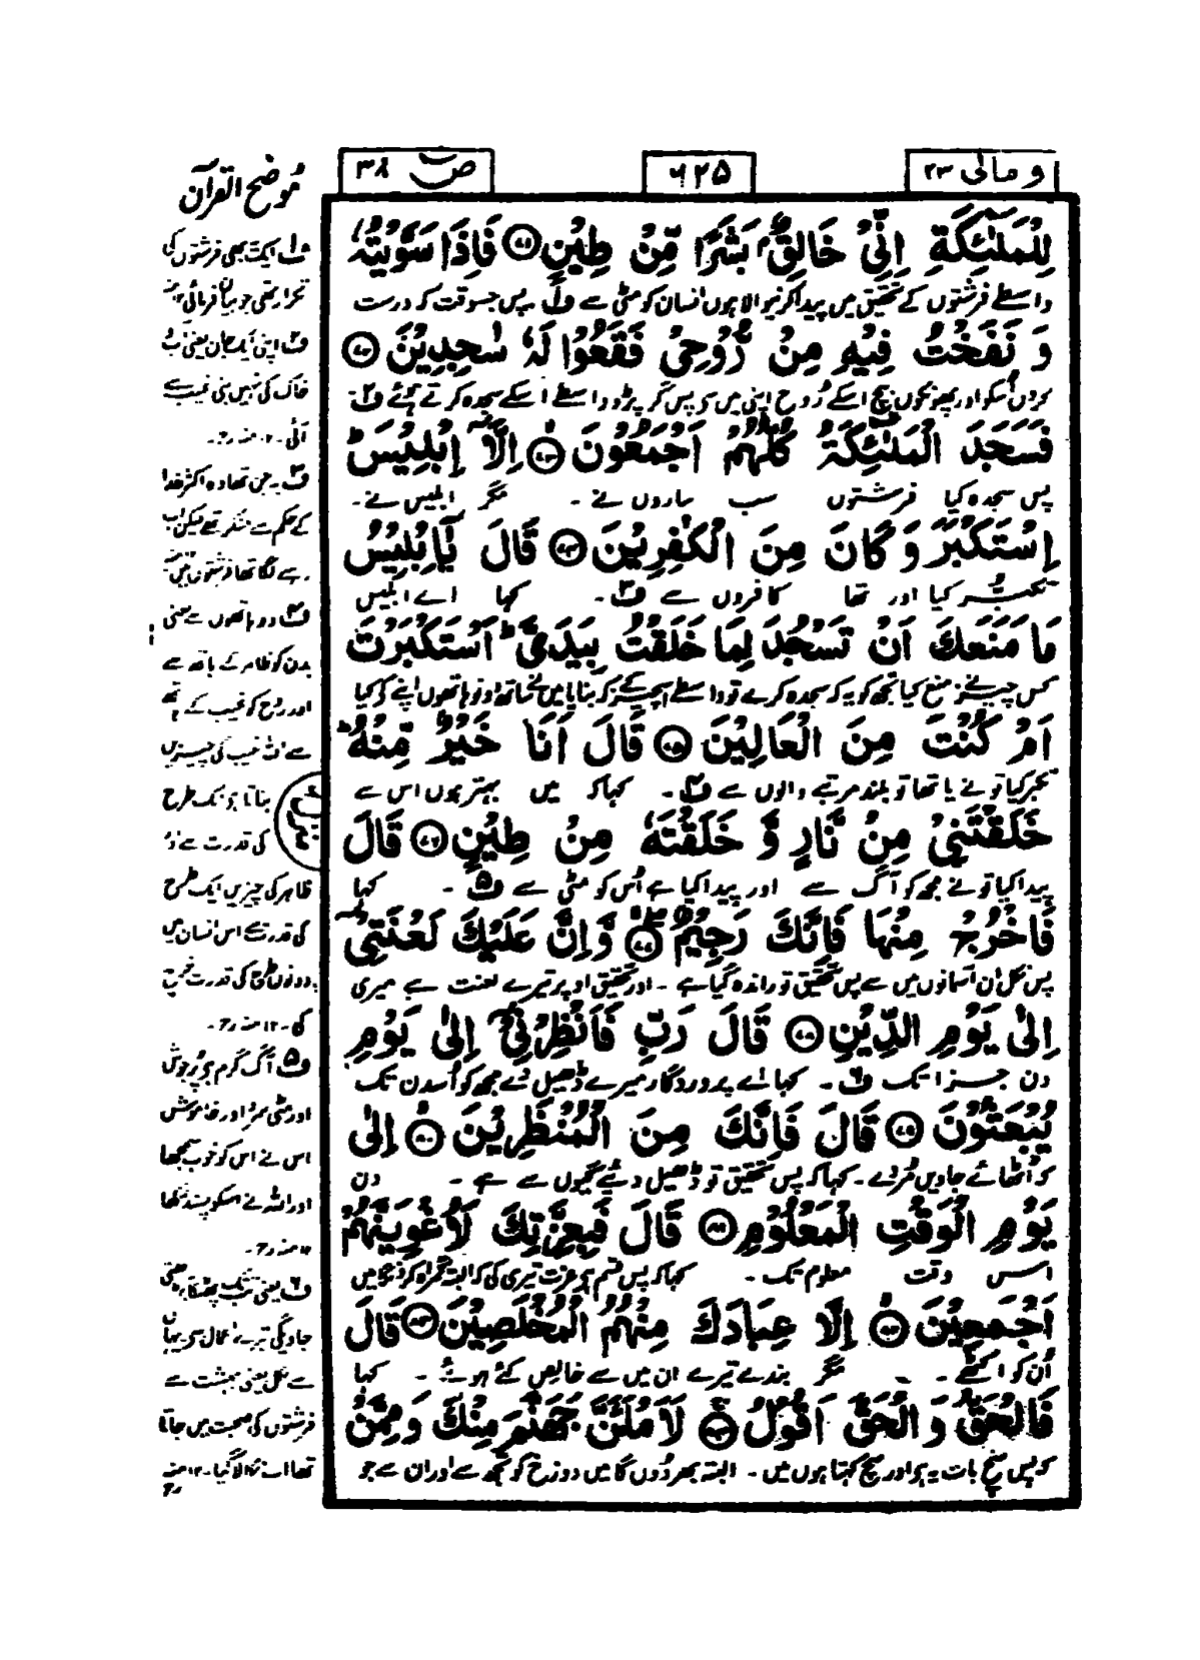 و مالی ۲۳
۶۲۵
ص ۳۸
لِلْمَلٰٓئِكَةِ اِنِّیْ خَالِقٌۢ بَشَرًا مِّنْ طِیْنٍ ﴿۷۱﴾ فَاِذَا سَوَّیْتُهٗ
واسطے فرشتوں کے تحقیق میں پیدا کرنیوالا ہوں انسان کو مٹی سے ف۱ پس جسوقت کہ درست
وَ نَفَخْتُ فِیْهِ مِنْ رُّوْحِیْ فَقَعُوْا لَهٗ سٰجِدِیْنَ ﴿۷۲﴾
کروں اسکو اور پھونکوں بیچ اسکے رُوح اپنی میں کو پس گر پڑو واسطے اسکے سجدہ کرتے ہوئے ف۲
فَسَجَدَ الْمَلٰٓئِكَةُ كُلُّهُمْ اَجْمَعُوْنَ ﴿۷۳﴾ اِلَّاۤ اِبْلِیْسَ ؕ
پس سجدہ کیا فرشتوں سب ساروں نے ۔ مگر ابلیس نے ۔
اِسْتَكْبَرَ وَ كَانَ مِنَ الْكٰفِرِیْنَ ﴿۷۴﴾ قَالَ یٰۤاِبْلِیْسُ
تکبّر کیا اور تھا کافروں سے ف۳ ۔ کہا اے ابلیس
مَا مَنَعَكَ اَنْ تَسْجُدَ لِمَا خَلَقْتُ بِیَدَیَّ ؕ اَسْتَكْبَرْتَ
کس چیز نے منع کیا تجھ کو یہ کہ سجدہ کرے تو واسطے اس چیز کے کہ بنایا میں نے ساتھ دونو ہاتھوں اپنے کے کیا
اَمْ كُنْتَ مِنَ الْعَالِیْنَ ﴿۷۵﴾ قَالَ اَنَا خَیْرٌ مِّنْهُ ؕ
تکبر کیا تو نے یا تھا تو بلند مرتبے والوں سے ف۴ ۔ کہا کہ میں بہتر ہوں اس سے
خَلَقْتَنِیْ مِنْ نَّارٍ وَّ خَلَقْتَهٗ مِنْ طِیْنٍ ﴿۷۶﴾ قَالَ
پیدا کیا تو نے مجھ کو آگ سے اور پیدا کیا ہے اُس کو مٹی سے ف۵ ۔ کہا
فَاخْرُجْ مِنْهَا فَاِنَّكَ رَجِیْمٌ ﴿۷۷﴾ وَّ اِنَّ عَلَیْكَ لَعْنَتِیْۤ
پس نکل ان آسمانوں میں سے پس تحقیق تو راندہ گیا ہے ۔ اور تحقیق اوپر تیرے لعنت ہے میری
اِلٰی یَوْمِ الدِّیْنِ ﴿۷۸﴾ قَالَ رَبِّ فَاَنْظِرْنِیْۤ اِلٰی یَوْمِ
دن جزا تک ف۶ ۔ کہا اے پروردگار میرے ڈھیل دے مجھ کو اُسدن تک
یُبْعَثُوْنَ ﴿۷۹﴾ قَالَ فَاِنَّكَ مِنَ الْمُنْظَرِیْنَ ﴿۸۰﴾ اِلٰی
کہ اُٹھائے جاویں مُردے ۔ کہا کہ پس تحقیق تو ڈھیل دیئے گیوں سے ہے ۔ دن
یَوْمِ الْوَقْتِ الْمَعْلُوْمِ ﴿۸۱﴾ قَالَ فَبِعِزَّتِكَ لَاُغْوِیَنَّهُمْ
اس وقت معلوم تک ۔ کہا کہ پس قسم ہے عزت تیری کی کہ البتہ گمراہ کروں گا میں
اَجْمَعِیْنَ ﴿۸۲﴾ اِلَّا عِبَادَكَ مِنْهُمُ الْمُخْلَصِیْنَ ﴿۸۳﴾ قَالَ
اُن کو اکٹھے ۔ مگر بندے تیرے ان میں سے خالص کئے ہوئے ۔ کہا
فَالْحَقُّ وَ الْحَقَّ اَقُوْلُ ﴿۸۴﴾ لَاَمْلَـَٔنَّ جَهَنَّمَ مِنْكَ وَ مِمَّنْ
کہ پس سچ بات یہ ہو اور سچ کہتا ہوں میں ۔ البتہ بھر دُوں گا میں دوزخ کو تجھ سے اور ان سے جو
مُوضح القرآن
ف۱ ایک یہ بھی فرشتوں کی
تکرار تھی جو بیان فرمائی ۱۲منہ
ف۲ اپنی ایک جان یعنی آب
خاک کی نہیں بنی غیب سے
آئی ۔ ۱۲ منہ رح ۔
ف۳ یہ جن تھا وہ اکثر خدا
کے حکم سے منکر تھے لیکن اب
رہنے لگا تھا فرشتوں میں
ف۴ دو ہاتھوں سے یعنی
بدن کو ظاہر کے ہاتھ سے
اور رُوح کو غیب کے ہاتھ
سے اللہ غیب کی چیزیں
بناتا ہے ایک طرح
کی قدرت سے اور
ظاہر کی چیزیں ایک طرح
کی قدرت سے اس انسان میں
دونوں طرح کی قدرت خرچ
کی ۔ ۱۲ منہ رح ۔
ف۵ آگ گرم ہے پُرجوش
اور مٹی سرد اور خاموش
اس نے اس کو خوب سمجھا
اور اللہ نے اسکو پسند رکھا
۱۲ منہ رح ۔
ف۶ یعنی تب تک پھٹکار
جاویگی تیرے اعمال سے یہاں
سے نکل یعنی بہشت سے
فرشتوں کی صحبت میں جاتا
تھا اب نکالا گیا ۔ ۱۲ منہ
رح